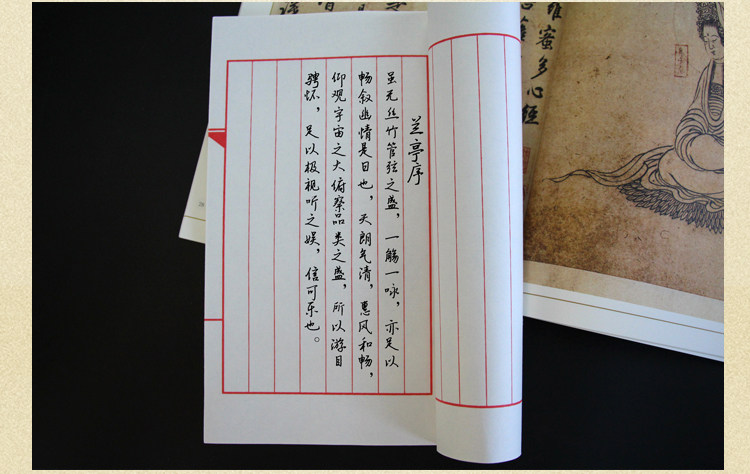 兰亭序
虽无丝竹管弦之盛，一觞一咏，亦足以
畅叙幽情是日也，天朗气清，惠风和畅，
仰观宇宙之大俯察品类之盛，所以游目
骋怀，足以极视听之娱，信可乐也。
蜜多心经